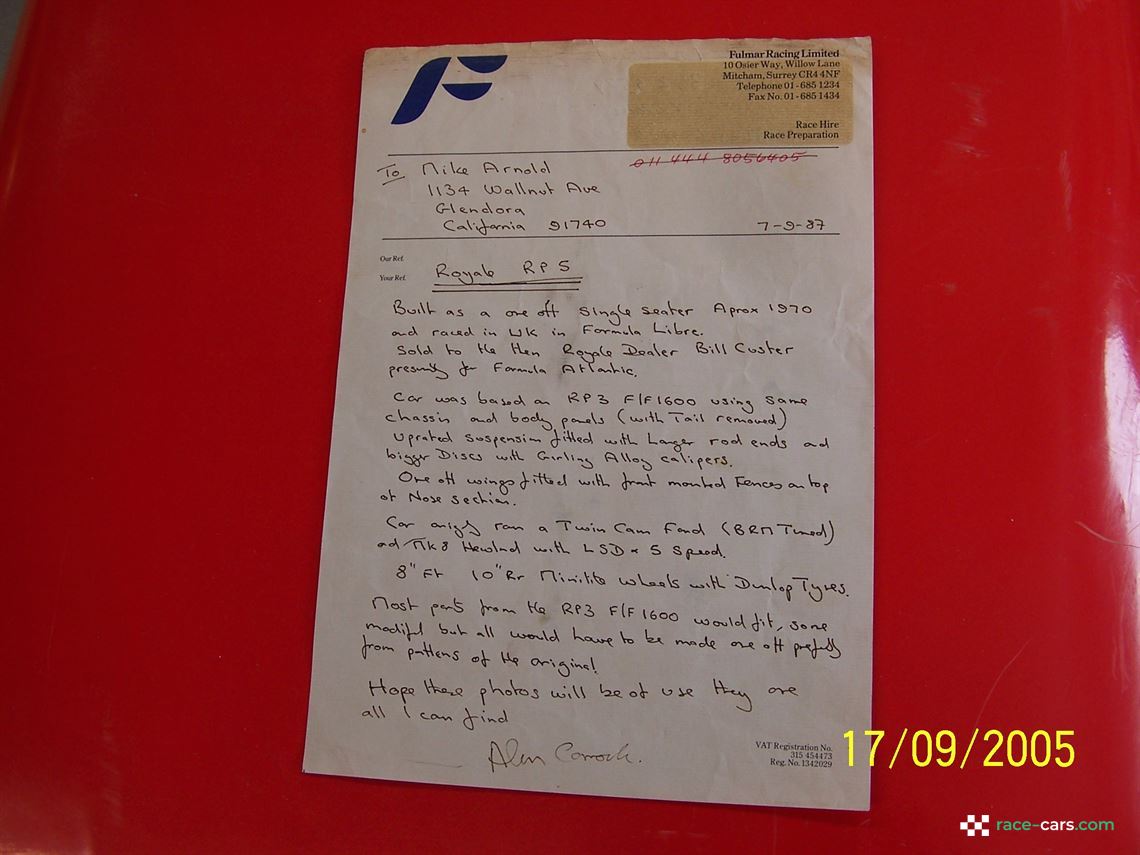 F
Fulmar Racing Limited
10 Osier Way, Willow Lane
Mitcham, Surrey CR4 4NF
Telephone 01-685 1234
Fax No. 01-685 1434
Race Hire
Race Preparation
011 444 8056405
To Mike Arnold
1134 Wallnut Ave
Glendora
California 91740
7-9-87
Our Ref.
Your Ref.
Royale RP5
Built as a one off single seater Aprox 1970
and raced in UK in Formula Libre.
Sold to the then Royale Dealer Bill Custer
presumly for Formula Atlantic.
Car was based on RP3 F/F1600 using same
chassin and body panels (with Tail removed)
uprated suspension fitted with Larger rod ends and
bigger Discs with Girling Alloy calipers.
One off wings fitted with front mounted Fences on top
of Nose section.
Car ran a Twin Cam Ford (BRM Tuned)
ad Mk8 Hewlnd with LSD x 5 Speed.
8" Ft 10" Rr Minilite wheels with Dunlop Tyres.
Most parts from the RP3 F/F 1600 would fit, some
modifd but all would have to be made one off
from pattens of the original
Hope these photos will be of use they are
all I can find
Alan
VAT Registration No.
315 454473
Reg. No. 1342029
17/09/2005
race-cars.com